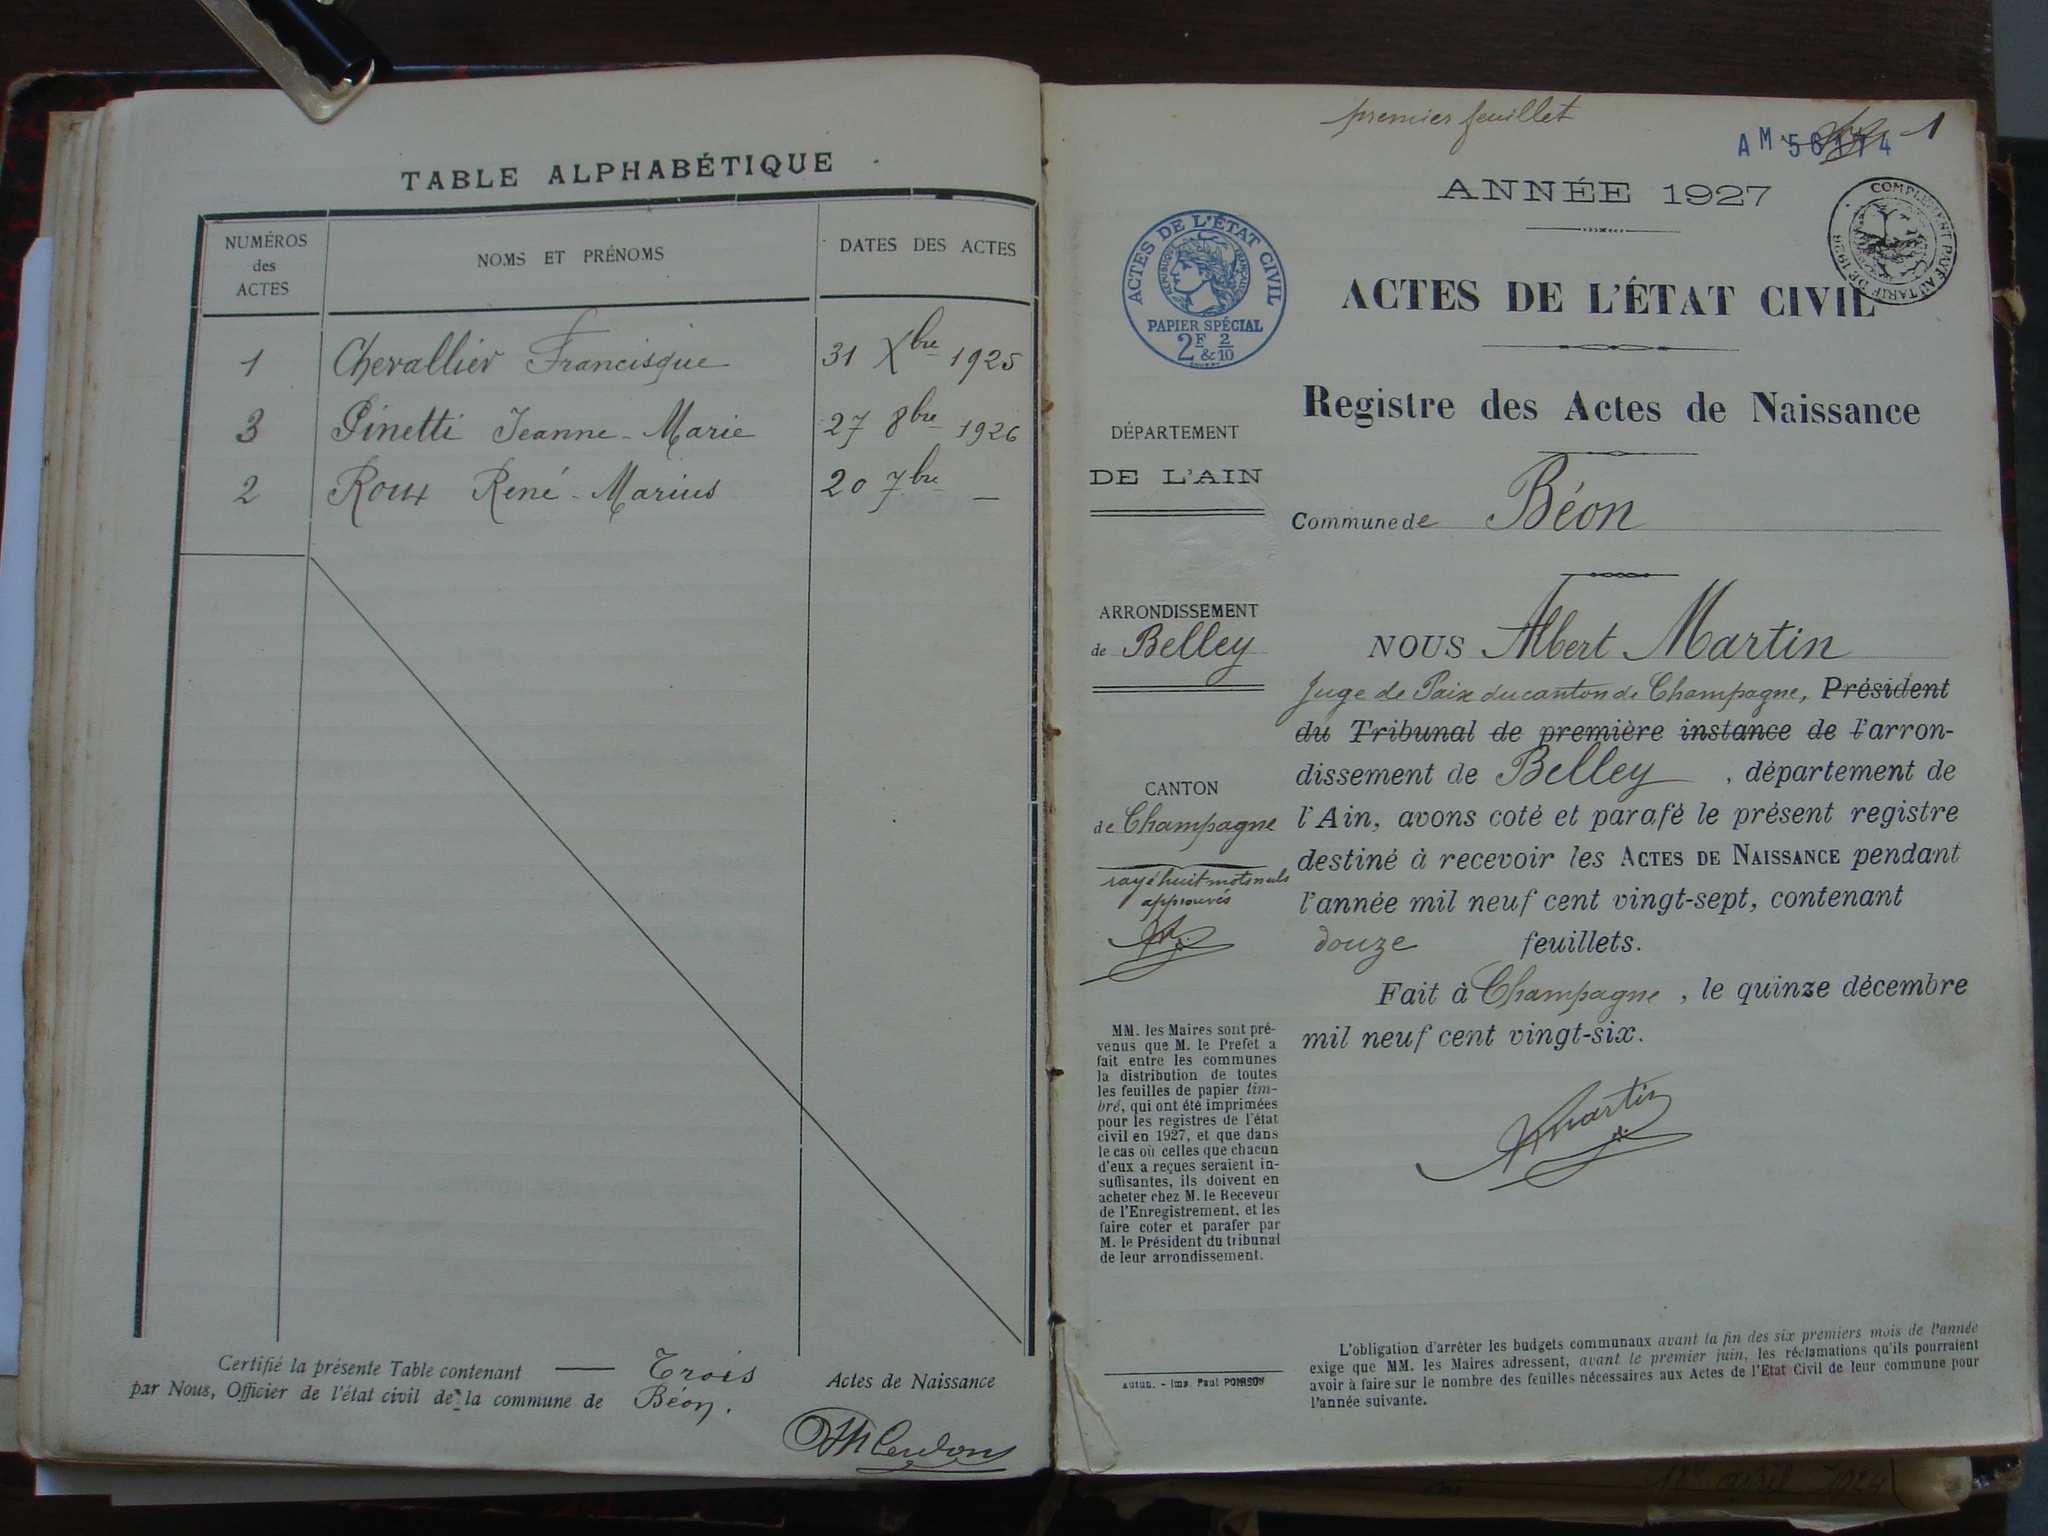 TABLE ALPHABÉTIQUE
NUMÉROS
des
ACTES
NOMS ET PRÉNOMS
DATES DES ACTES
1 Chevallier Francisque 31 Xbre 1925
3 Pinetti Jeanne-Marie 27 8bre 1926
2 Roux René-Marius 20 7bre —
Certifié la présente Table contenant — Trois Actes de Naissance
par Nous, Officier de l'état civil de la commune de Béon.
premier feuillet
1
AM
ANNÉE 1927
COMPLÉMENT PAYÉ AU TARIF DE
ACTES DE L'ÉTAT CIVIL
RÉPUBLIQUE FRANÇAISE
PAPIER SPÉCIAL
2F & 2/10
ACTES DE L'ÉTAT CIVIL
Registre des Actes de Naissance
Commune de Béon
DÉPARTEMENT
DE L'AIN
ARRONDISSEMENT
de Belley
CANTON
de Champagne
rayé huit mots nuls
approuvés
MM. les Maires sont pré-
venus que M. le Prefet a
fait entre les communes
la distribution de toutes
les feuilles de papier tim-
bré, qui ont été imprimées
pour les registres de l'état
civil en 1927, et que dans
le cas où celles que chacun
d'eux a reçues seraient in-
suffisantes, ils doivent en
acheter chez M. le Receveur
de l'Enregistrement, et les
faire coter et parafer par
M. le Président du tribunal
de leur arrondissement.
Autun. - Imp. Paul POIRSON
NOUS Albert Martin
Juge de Paix du canton de Champagne, Président
du Tribunal de première instance de l'arron-
dissement de Belley, département de
l'Ain, avons coté et parafé le présent registre
destiné à recevoir les ACTES DE NAISSANCE pendant
l'année mil neuf cent vingt-sept, contenant
douze feuillets.
Fait à Champagne, le quinze décembre
mil neuf cent vingt-six.
AMartin
L'obligation d'arrêter les budgets communaux avant la fin des six premiers mois de l'année
exige que MM. les Maires adressent, avant le premier juin, les réclamations qu'ils pourraient
avoir à faire sur le nombre des feuilles nécessaires aux Actes de l'Etat Civil de leur commune pour
l'année suivante.